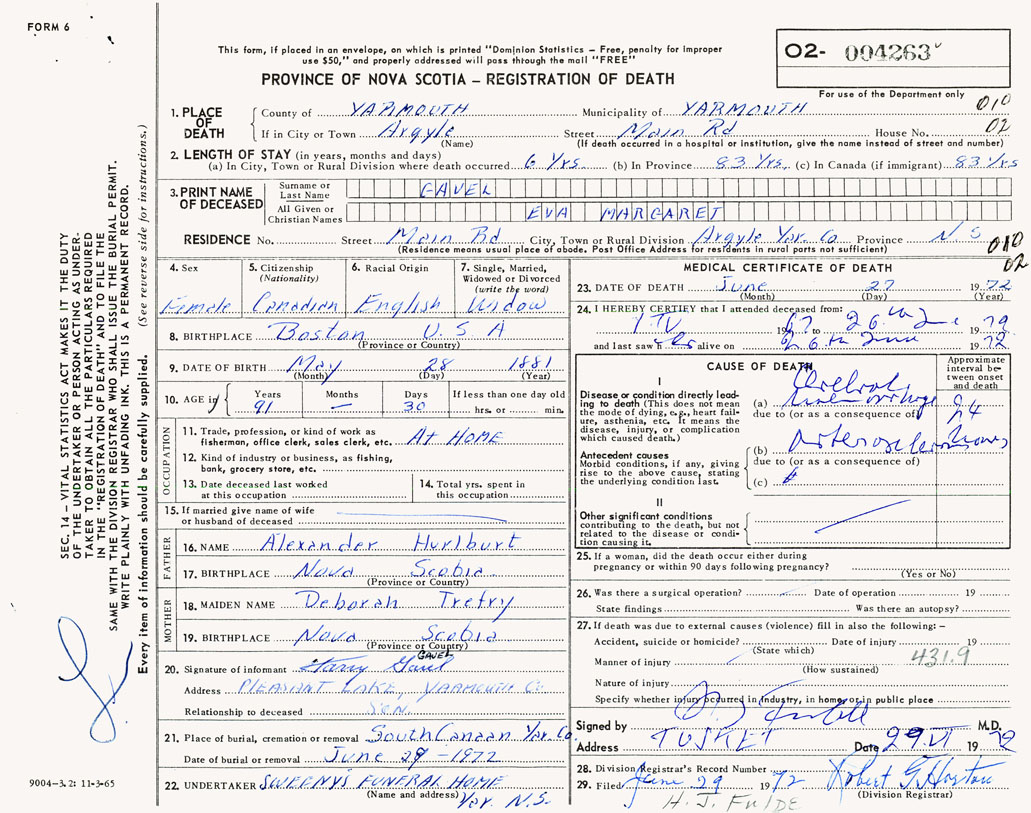 FORM 6
This form, if placed in an envelope, on which is printed "Dominion Statistics – Free, penalty for improper
use $50," and properly addressed will pass through the mail "FREE"
PROVINCE OF NOVA SCOTIA – REGISTRATION OF DEATH
O2- 004263
For use of the Department only
010
02
SEC. 14 – VITAL STATISTICS ACT MAKES IT THE DUTY
OF THE UNDERTAKER OR PERSON ACTING AS UNDER-
TAKER TO OBTAIN ALL THE PARTICULARS REQUIRED
IN THE "REGISTRATION OF DEATH" AND TO FILE THE
SAME WITH THE DIVISION REGISTRAR WHO SHALL ISSUE THE BURIAL PERMIT.
WRITE PLAINLY WITH UNFADING INK. THIS IS A PERMANENT RECORD.
Every item of information should be carefully supplied. (See reverse side for instructions.)
1. PLACE OF DEATH
County of YARMOUTH Municipality of YARMOUTH
If in City or Town Argyle Street Main Rd House No.
(Name) (If death occurred in a hospital or institution, give the name instead of street and number)
2. LENGTH OF STAY (in years, months and days)
(a) In City, Town or Rural Division where death occurred 6 Yrs. (b) In Province 83 Yrs. (c) In Canada (if immigrant) 83 Yrs
3. PRINT NAME OF DECEASED
Surname or Last Name GAVEL
All Given or Christian Names EVA MARGARET
RESIDENCE No. Street Main Rd City, Town or Rural Division Argyle Yar. Co. Province N. S
(Residence means usual place of abode. Post Office Address for residents in rural parts not sufficient)
010
02
4. Sex
Female
5. Citizenship
(Nationality)
Canadian
6. Racial Origin
English
7. Single, Married,
Widowed or Divorced
(write the word)
Widow
8. BIRTHPLACE Boston U. S A
(Province or Country)
9. DATE OF BIRTH May 28 1881
(Month) (Day) (Year)
10. AGE if
Years Months Days If less than one day old
91 — 30 hrs. or min.
OCCUPATION
11. Trade, profession, or kind of work as
fisherman, office clerk, sales clerk, etc. At HOME
12. Kind of industry or business, as fishing,
bank, grocery store, etc.
13. Date deceased last worked
at this occupation
14. Total yrs. spent in
this occupation
15. If married give name of wife
or husband of deceased
FATHER
16. NAME Alexander Hurlburt
17. BIRTHPLACE Nova Scotia
(Province or Country)
MOTHER
18. MAIDEN NAME Deborah Trefry
19. BIRTHPLACE Nova Scotia
(Province or Country)
GAVEL
20. Signature of informant Harry Gavel
Address PLEASANT LAKE, YARMOUTH Co
Relationship to deceased Son.
21. Place of burial, cremation or removal South Canaan Yar. Co.
Date of burial or removal June 29 – 1972
22. UNDERTAKER SWEENY'S FUNERAL HOME
(Name and address) Yar. N.S.
9004–3.2: 11-3-65
MEDICAL CERTIFICATE OF DEATH
23. DATE OF DEATH June 27 1972
(Month) (Day) (Year)
24. I HEREBY CERTIFY that I attended deceased from:
1 IV 1967 to 26th June 1972
and last saw her alive on 26th June 1972
CAUSE OF DEATH
Approximate interval between onset and death
I
Disease or condition directly lead-
ing to death (This does not mean
the mode of dying, e.g., heart fail-
ure, asthenia, etc. It means the
disease, injury, or complication
which caused death.)
(a) Cerebral haemorrhage
due to (or as a consequence of)
Antecedent causes
Morbid conditions, if any, giving
rise to the above cause, stating
the underlying condition last.
(b) Arteriosclerosis
due to (or as a consequence of)
(c)
24 hours
II
Other significant conditions
contributing to the death, but not
related to the disease or condi-
tion causing it.
25. If a woman, did the death occur either during
pregnancy or within 90 days following pregnancy?
(Yes or No)
26. Was there a surgical operation? Date of operation 19
State findings Was there an autopsy?
27. If death was due to external causes (violence) fill in also the following: –
Accident, suicide or homicide? Date of injury 19
(State which)
431.9
Manner of injury
(How sustained)
Nature of injury
Specify whether injury occurred in industry, in home or in public place
Signed by M.D.
Address TUSKET Date 29 VI 1972
28. Division Registrar's Record Number
29. Filed June 29 1972 Robert G. Horton
(Division Registrar)
H. J. FULDE